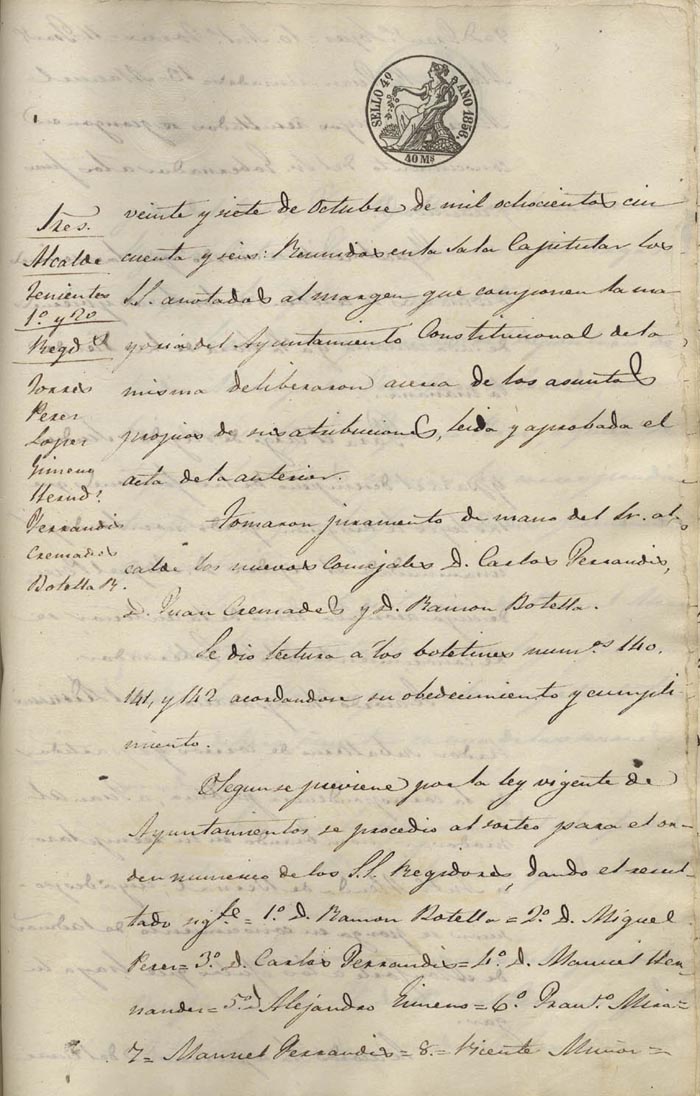 SELLO 4º AÑO 1856.
40 Ms
Sres.
Alcalde
Tenientes
1º y 2º
Regds
Torres
Perez
Lopez
Gimeno
Herndz
Ferrandis
Cremades
Botella R.
veinte y siete de Octubre de mil ochocientos cin
cuenta y seis: Reunidos en la Sala Capitular los
S.S. anotados al margen que componen la ma
yoria del Ayuntamiento Constitucional de la
misma deliberaron acerca de los asuntos
propios de sus atribuciones, leida y aprobada el
acta de la anterior.
Tomaron juramento de mano del Sr. al
calde los nuevos Concejales D. Carlos Ferrandis,
D. Juan Cremades y D. Ramon Botella.
Se dio lectura a los boletines numos 140,
141, y 142 acordandose su obedecimiento y cumpli
miento.
Segun se previene por la ley vigente de
Ayuntamientos se procedio al sorteo para el or
den numerico de los S.S. Regidores, dando el resul
tado sigte = 1º D. Ramon Botella = 2º D. Miguel
Perez = 3º D. Carlos Ferrandis = 4º D. Manuel Her
nandez = 5º D Alejandro Gimeno = 6º Franco Mira =
7 = Manuel Ferrandis = 8 = Vicente Muñoz =